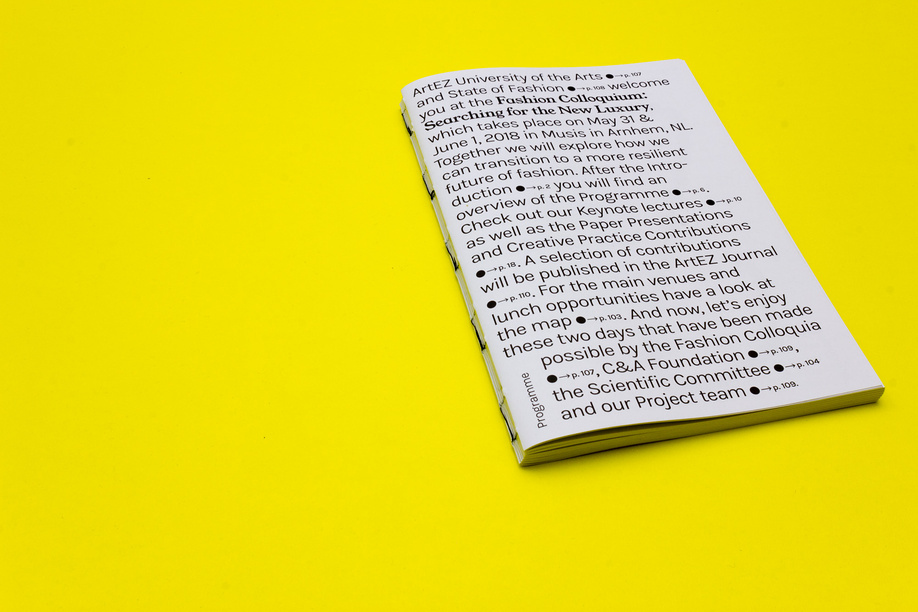 ArtEZ University of the Arts ●→p. 107
and State of Fashion ●→p. 108 welcome
you at the Fashion Colloquium:
Searching for the New Luxury,
which takes place on May 31 &
June 1, 2018 in Musis in Arnhem, NL.
Together we will explore how we
can transition to a more resilient
future of fashion. After the Intro-
duction ●→p. 2 you will find an
overview of the Programme ●→p. 6.
Check out our Keynote lectures ●→p. 10
as well as the Paper Presentations
and Creative Practice Contributions
●→p. 18. A selection of contributions
will be published in the ArtEZ Journal
●→p. 110. For the main venues and
lunch opportunities have a look at
the map ●→p. 103. And now, let's enjoy
these two days that have been made
possible by the Fashion Colloquia
●→p. 107, C&A Foundation ●→p. 109,
the Scientific Committee ●→p. 104
and our Project team ●→p. 109.
Programme